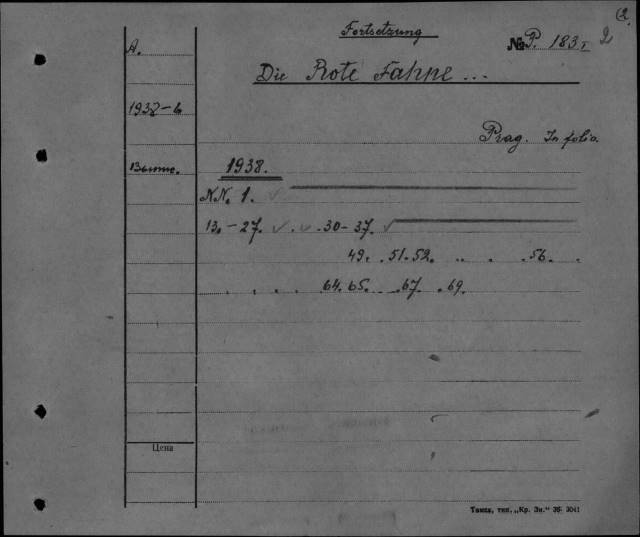 2
Fortsetzung
A.
№ P. 183 I 2
Die Rote Fahne...
Prag. In folio.
1938.
N.N. 1.
13. - 27. 30 - 37.
49. 51. 52. 56.
64. 65. 67. 69.
Цена
Танза, тип. „Кр. Зн.“ 36 3041